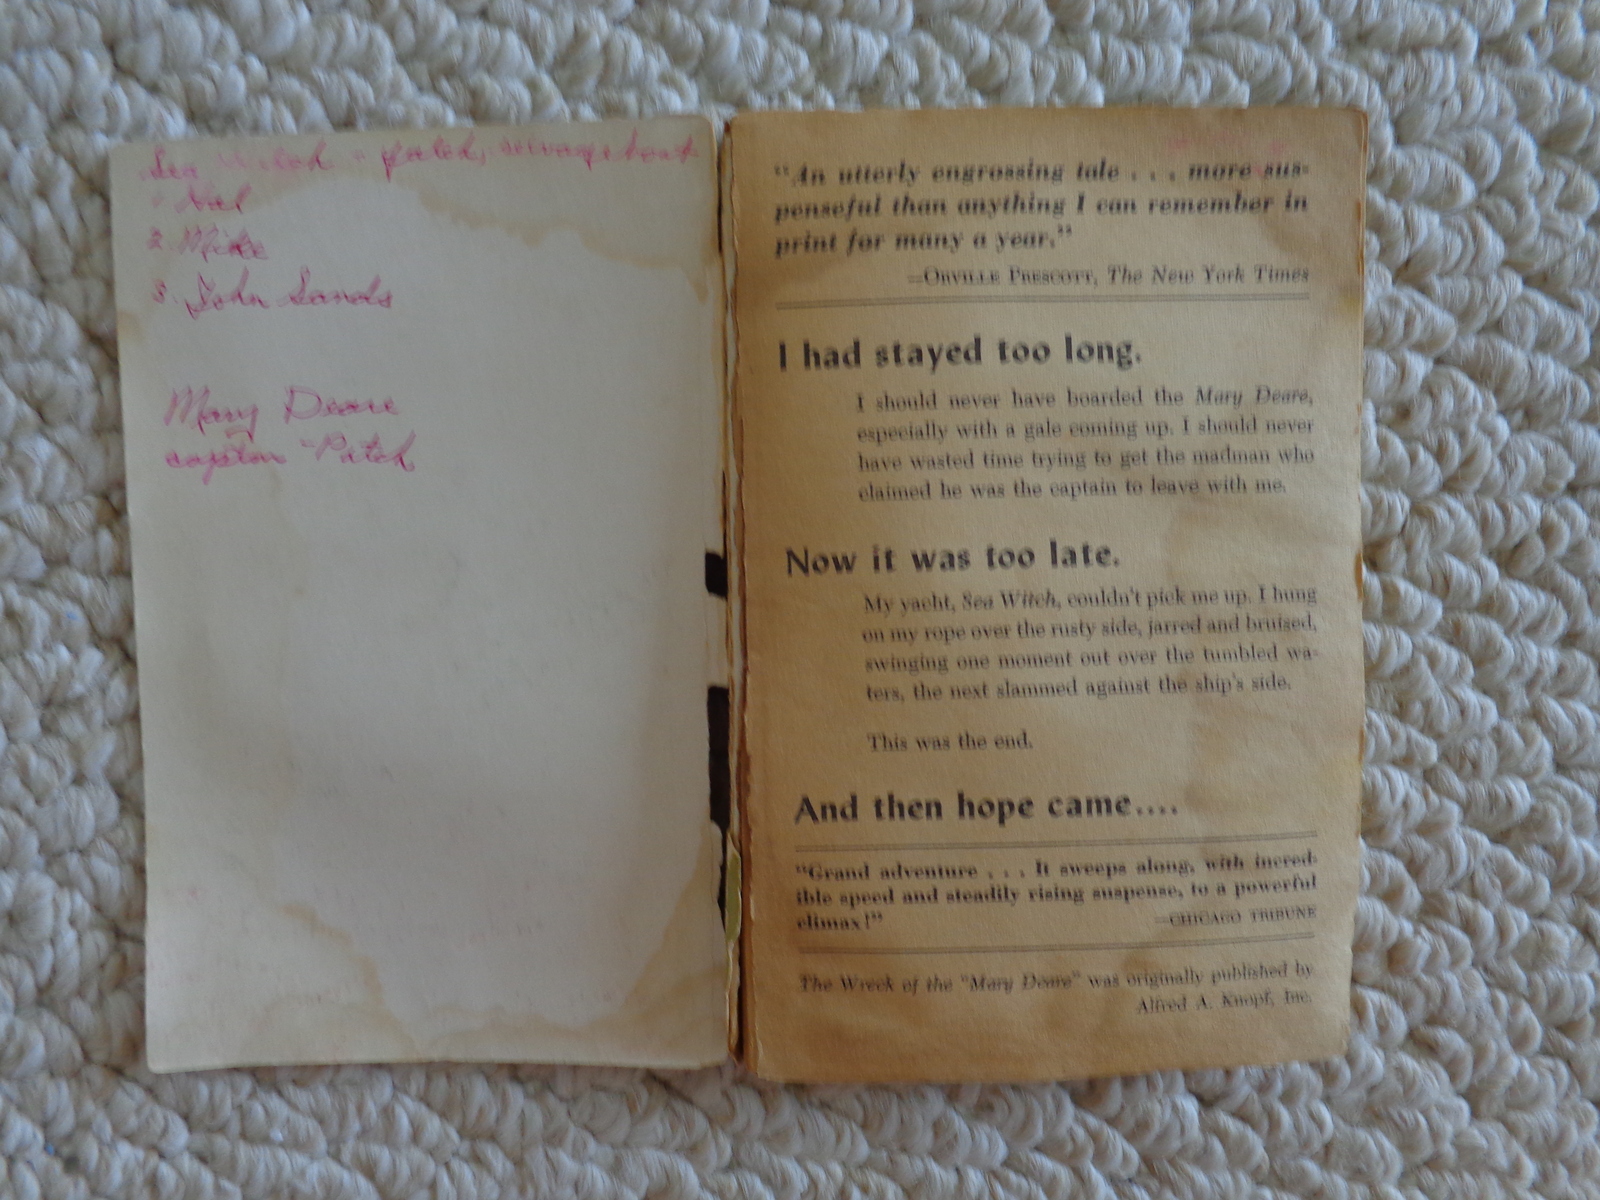 Sea Witch - Patch, salvage boat
1 Hal
2. Mike
3. John Sands
Mary Deare
capton - Patch
"An utterly engrossing tale . . . more sus-
penseful than anything I can remember in
print for many a year."
—ORVILLE PRESCOTT, The New York Times
I had stayed too long.
I should never have boarded the Mary Deare,
especially with a gale coming up. I should never
have wasted time trying to get the madman who
claimed he was the captain to leave with me.
Now it was too late.
My yacht, Sea Witch, couldn't pick me up. I hung
on my rope over the rusty side, jarred and bruised,
swinging one moment out over the tumbled wa-
ters, the next slammed against the ship's side.
This was the end.
And then hope came....
"Grand adventure . . . It sweeps along, with incred-
ible speed and steadily rising suspense, to a powerful
climax!"
—CHICAGO TRIBUNE
The Wreck of the "Mary Deare" was originally published by
Alfred A. Knopf, Inc.